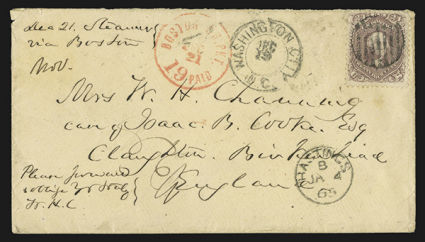 Dec 21. Steamer
via Boston
BOSTON
21
19 PAID
WASHINGTON CITY
DEC
19
Mrs W. H. Channing
care of Isaac B. Cooke, Esq
Claughton. Birkenhead
England
Please forward
W. H. C.
HASTINGS
B
JA 4
65